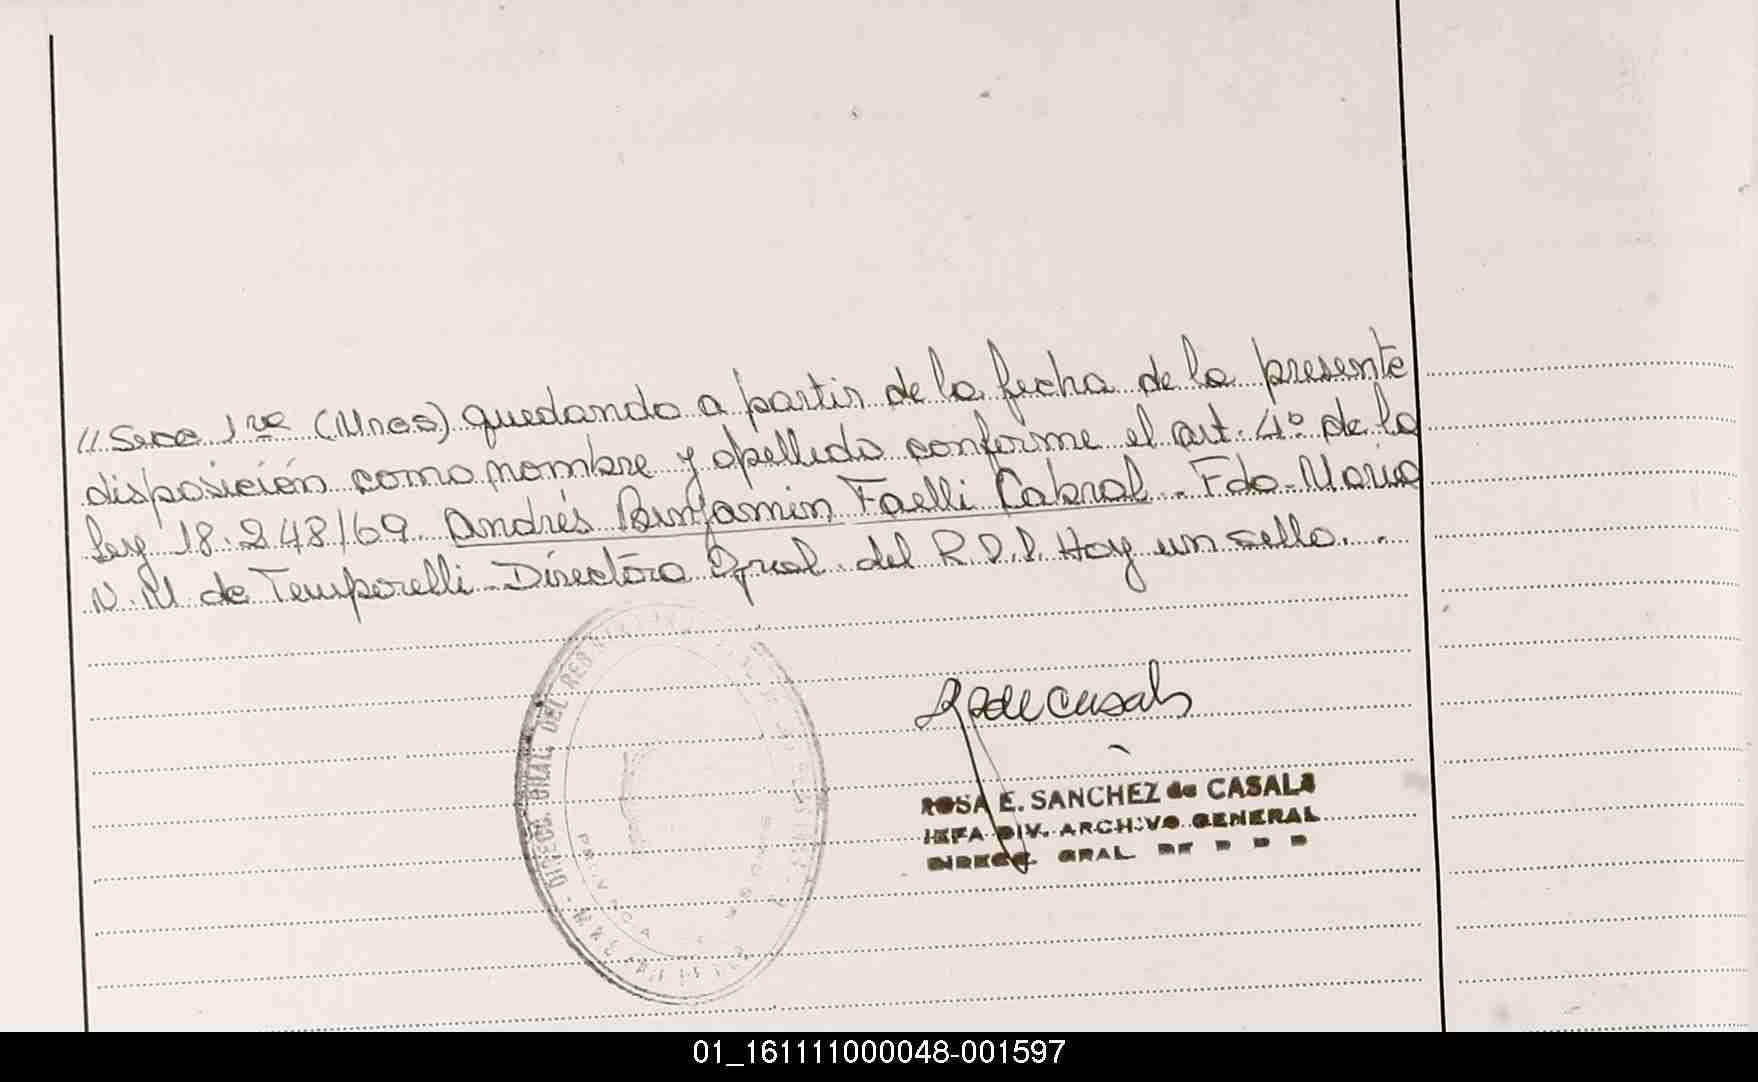 // Seco 1ra (Unos) quedando a partir de la fecha de la presente
disposición como nombre y apellido conforme el art. 4º de la
ley 18.248/69 Andrés Benjamin Faelli Cabral. Fdo. Maria
N. M de Temporelli - Directora Gral. del R.P.P. Hay un sello. -
DIRECC. GRAL. DEL REG
PROVINCIA
ROSA E. SANCHEZ de CASALS
JEFA DIV. ARCHIVO GENERAL
DIRECC. GRAL. DE R P P
01_161111000048-001597